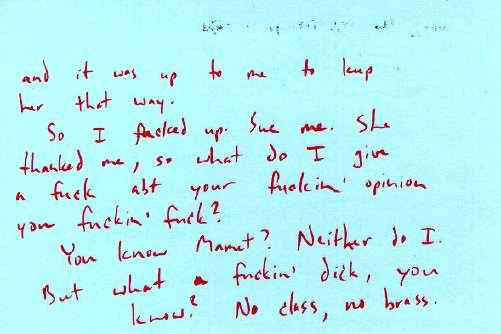 and it was up to me to keep
her that way.
So I fucked up. Sue me. She
thanked me, so what do I give
a fuck abt your fuckin' opinion
you fuckin' fuck?
You know Mamet? Neither do I.
But what a fuckin' dick, you
know? No class, no brass.